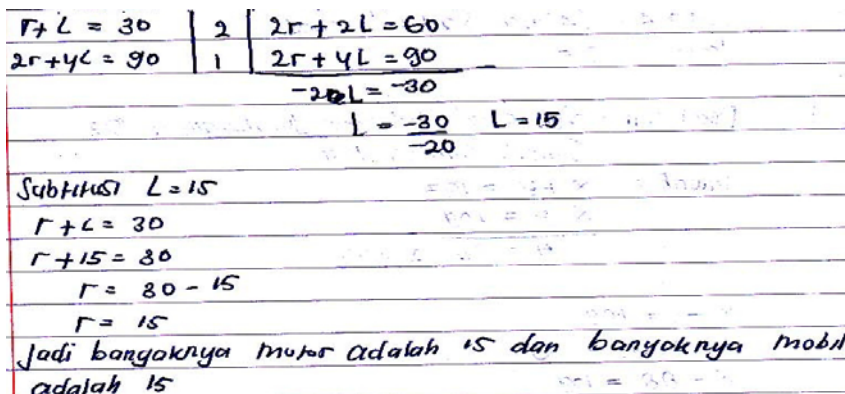 r + L = 30 | 2 | 2r + 2L = 60
2r + 4L = 90 | 1 | 2r + 4L = 90 -
-2L = -30
L = -30/-20 L = 15
Subtitusi L = 15
r + L = 30
r + 15 = 30
r = 30 - 15
r = 15
Jadi banyaknya motor adalah 15 dan banyaknya mobil
adalah 15